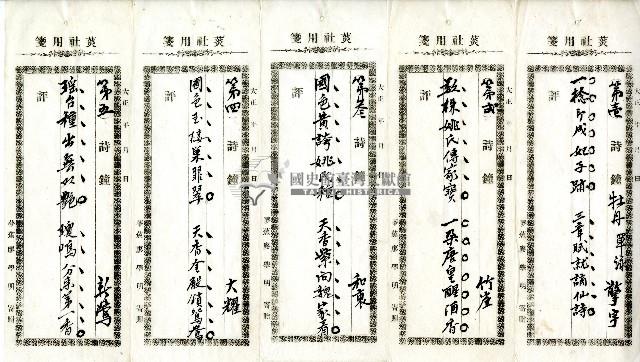 箋用社萸
大正 年 月 日
第壹 詩鐘 牡丹
評
一捻印成妃子跡 三章賦就謫仙詩
箋用社萸
大正 年 月 日
第貳 詩鐘 竹崖
評
數株姚氏傳家寶 一朶唐皇醒酒香
箋用社萸
大正 年 月 日
第叁 詩鐘 和東
評
國色黃誇姚 天香紫向魏家看
箋用社萸
大正 年 月 日
第四 詩鐘 大耀
評
國色玉樓巢翡翠 天香金殿鎖鴛鴦
箋用社萸
大正 年 月 日
第五 詩鐘
評
瑶台種出
第一香
國史館臺灣文獻館
TAIWAN HISTORICA